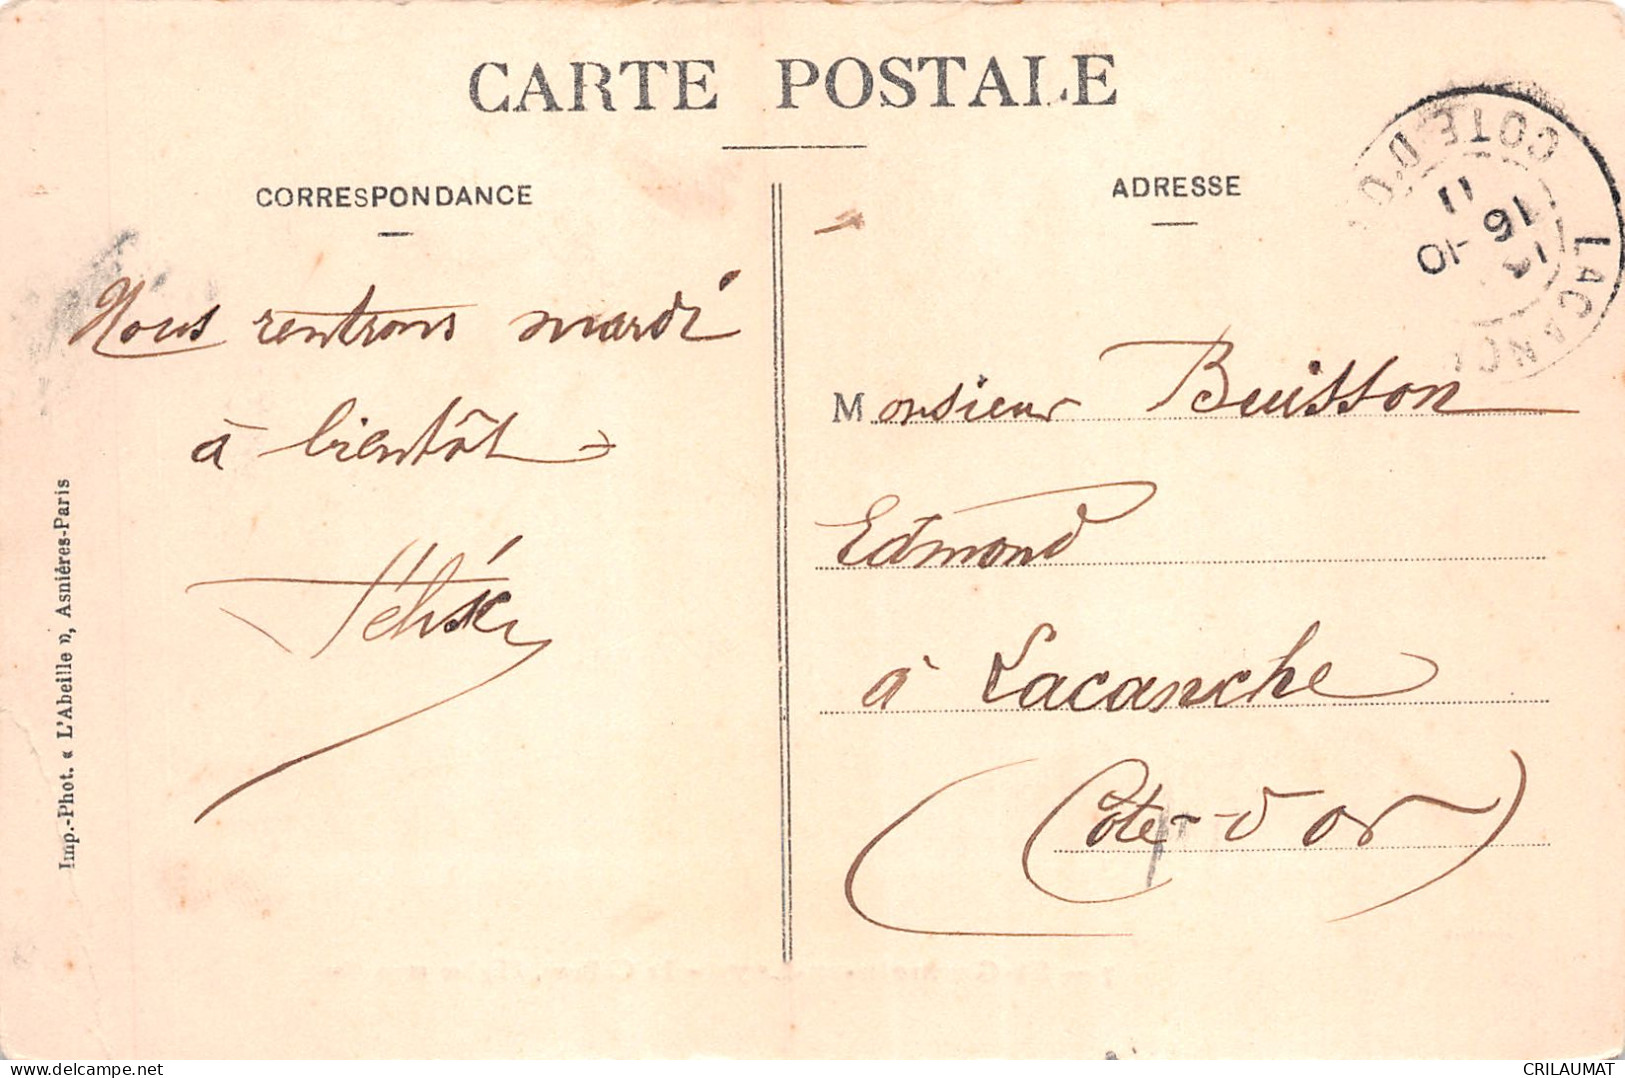 CARTE POSTALE
CORRESPONDANCE
Nous rentrons mardi
à bientôt
Imp.-Phot. « L'Abeille », Asnières-Paris
ADRESSE
LACANCHE
COTE-D'OR
11
16
-10
Monsieur Buisson
Edmond
à Lacanche
(Côte-d'or)
www.delcampe.net
CRILAUMAT